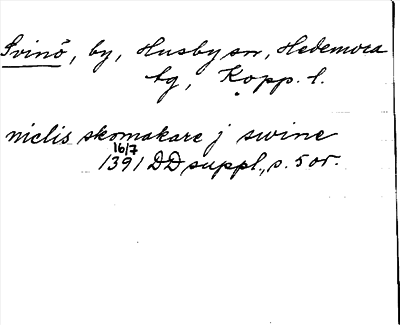 Svinö, by, Husby sn, Hedemora
tg, Kopp. l.
niclis skomakare j swine
16/7
1391 DD suppl., s. 5 or.